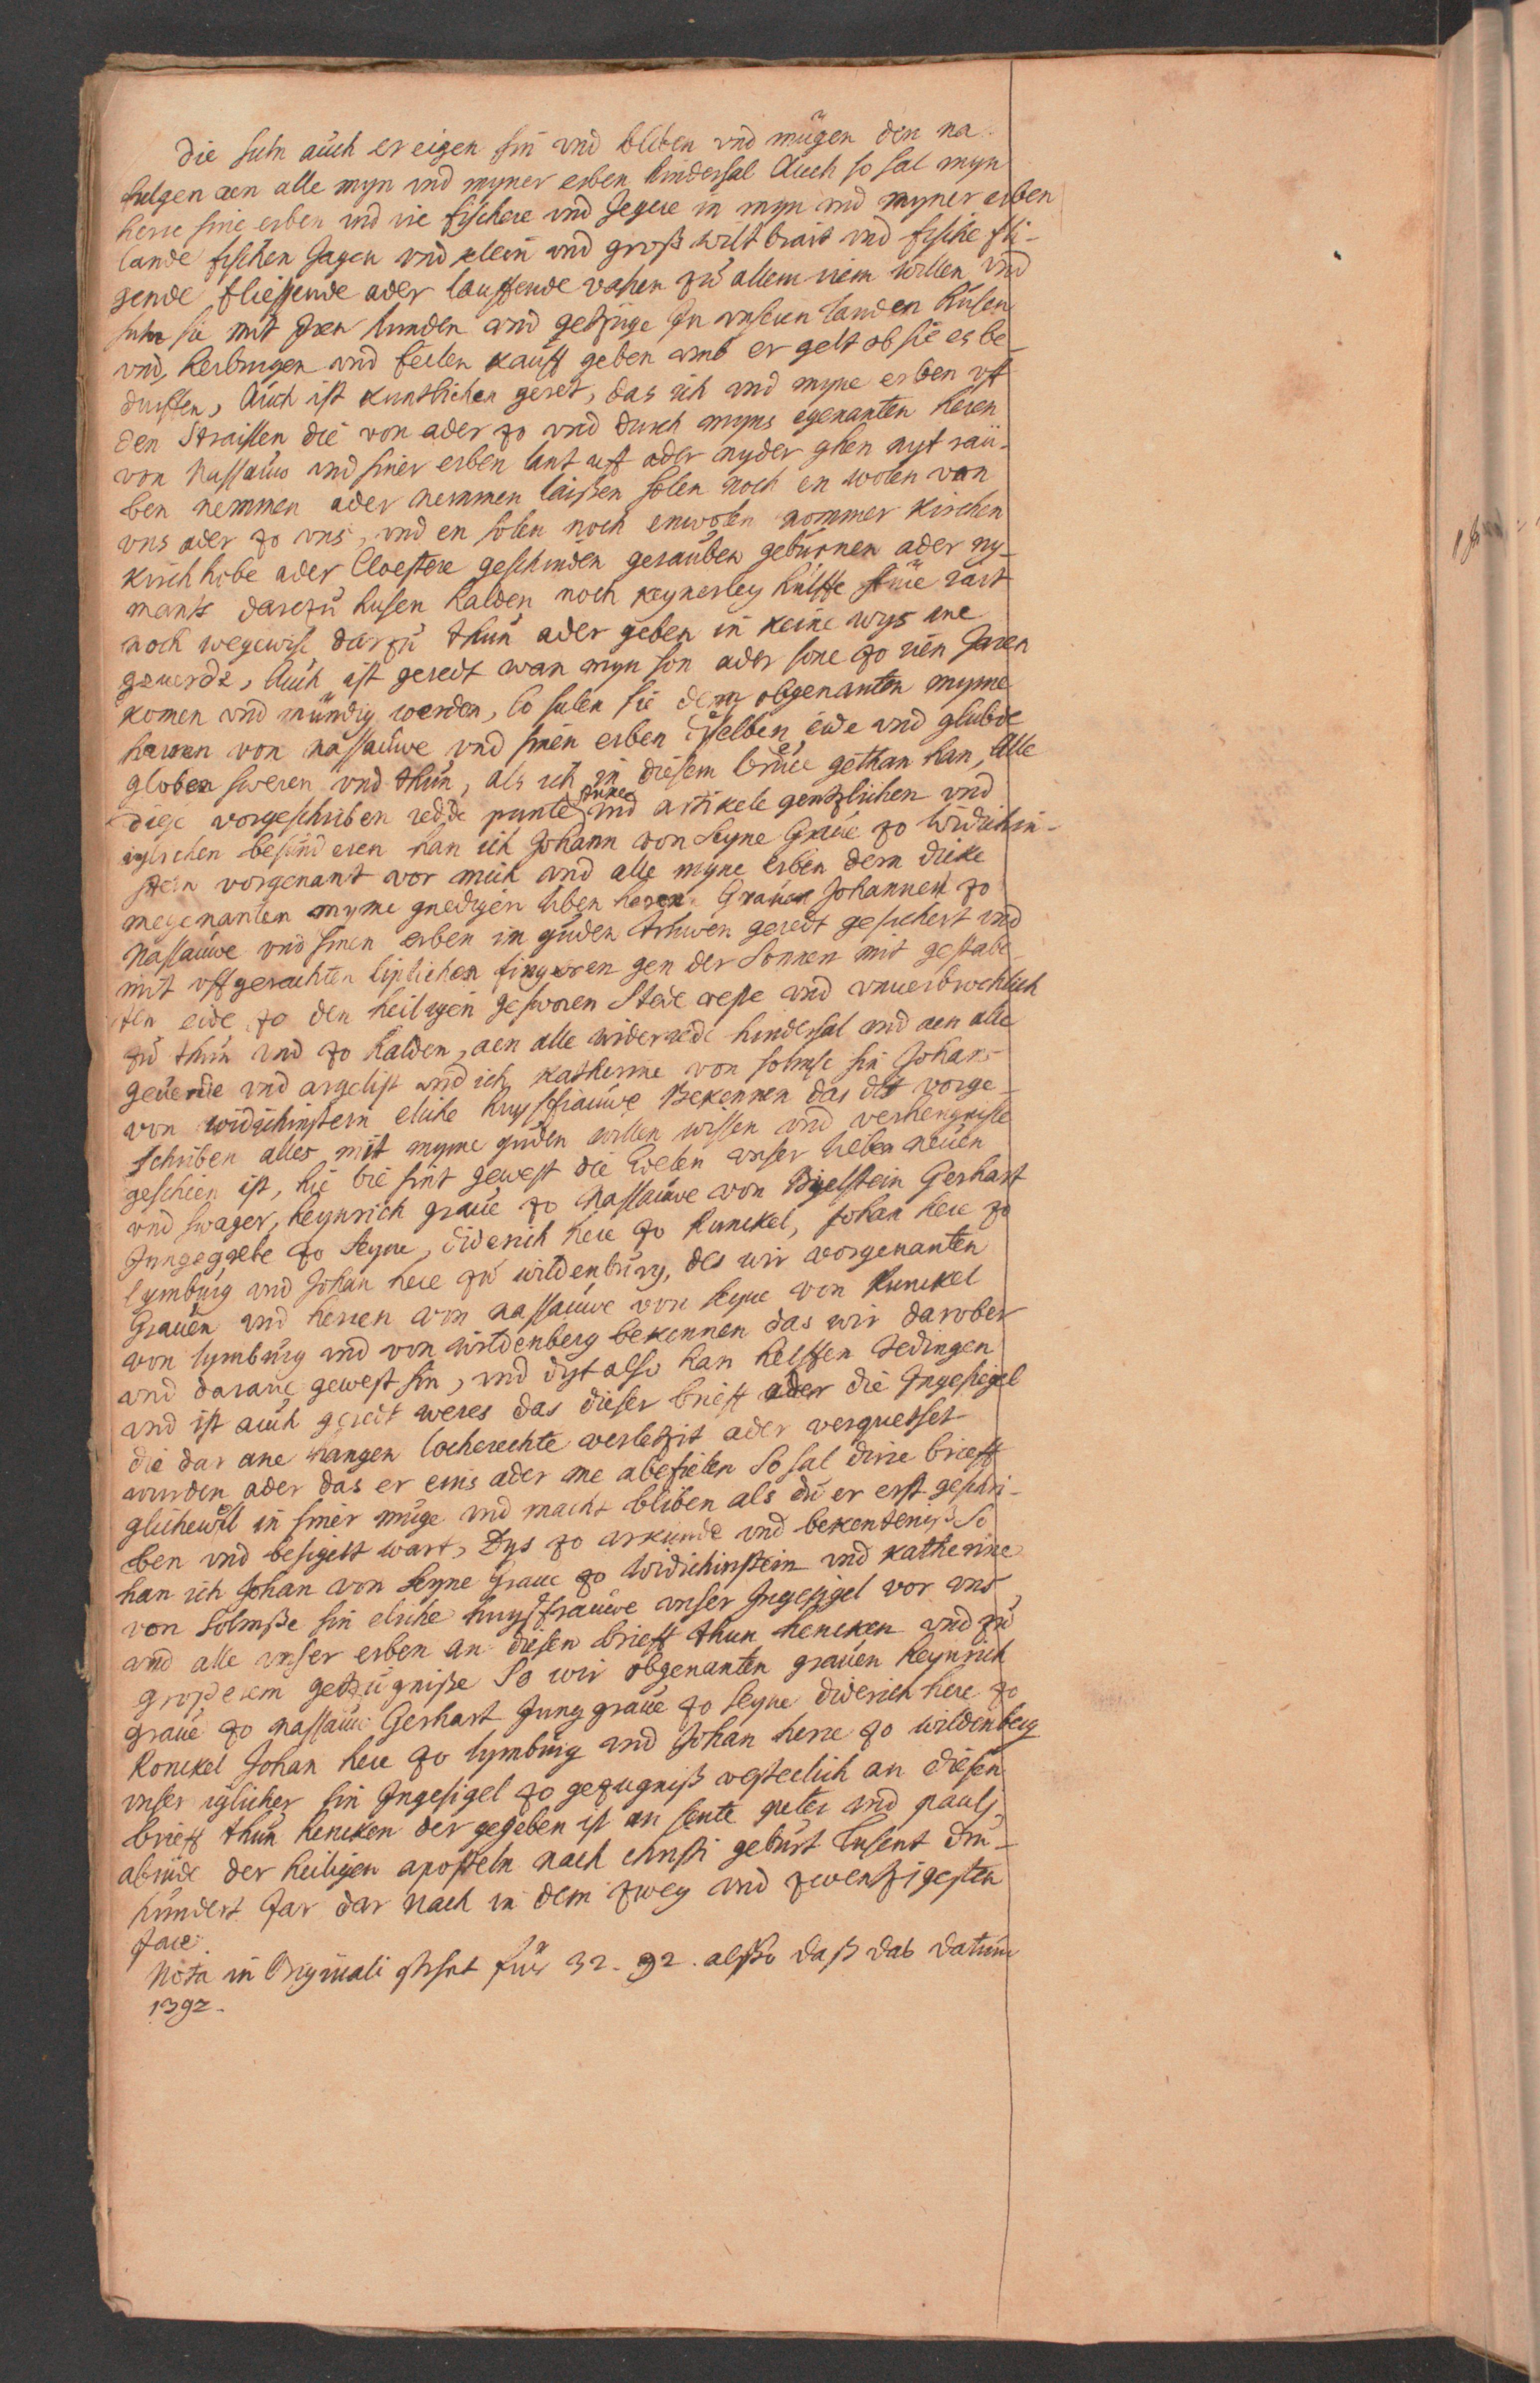 die suln auch er eigen sin vnd bliben vnd mügen den na
hulgen aen alle myn vnd myner erben hindersal Auch so sal myn
herre sine erben vnd ire fischere vnd Jegere in myn vnd myner erben
lande fischen Jagen vnd klein vnd groß wiltbrait vnd fische fli-
gende fliessende ader lauffende vahen zu allem irem willen vnd
suln sie mit Iren hunden vnd gezuge In vnseren landen husen
vnd, herbingen vnd feilen kauff geben vmb er gelt ob sie es be-
durffen, Auch ist kuntlichen geret, das ich vnd myne erben vf
den Straissen die von ader zo vnd durch myns egenanten heren
von Nassauw vnd siner erben lant uf oder nyder ghen nyt rau-
ben nemmen ader nemmen laißen solen noch en wolen van
vns ader zo vns, vnd en solen noch enwolen nommer kirchen
kirchhobe ader Cloestere geschinden gerauben geburnen ader ny-
mants darzu husen halden noch keynerley hulffe stuie rait
noch wegewise darzu thun ader geben in keine wys ane
geuerde, Auch ist geredt wan myn son ader sone zo iren Jaren
komen vnd mundig werden, so sulen sie dem obgenanten myme
herren von nassauwe vnd sinen erben diselben eide vnd glubde
globen sweren vnd thun, als ich in diesem brieue gethan han, Alle
diese vorgeschriben redde punte stuke vnd artikele gentzlichen vnd
iglichen besunderen han ich Johann von Seyne Graue zo Widichin-
stein vorgenant vor mich vnd alle myne erben dem dicke
megenanten myme gnedigen liben heren Grauen Johannen zo
Nassauwe vnd sinen erben in guden truwen geredt gesichert vnd
mit vffgerachten liplichen fingeren gen der Sonnen mit gestabe-
ten eide zo den heiligen geswaren Stede veste vnd vnuerbrochlich
zu thun vnd zo halden, aen alle widerrede hindersal vnd aen alle
geuerde vnd argelist vnd ich katherine von solmse sin Johans
von widichinstein eliche huysfrauwe Bekennen das dis vorge-
schriben alles mit myme guden willen wissen vnd verhengnisse
geschein ist, hie bie sint gewest die Edelen vnser lieben neuen
vnd swager, heynrich graue zo Nassauwe von Bigelstein Gerhart
Junggrebe zo Seyne, diderich here zo Runckel, Johan here zo
lymburg vnd Johan here zu wildenburg, des wir vorgenanten
Grauen vnd herren von nassauwe von seyne von Runckel
von lymburg vnd von wildenberg bekennen das wir darober
vnd darane gewest sin, vnd dyt also han helffen dedingen
vnd ist auch geredt weres das dieser brieff ader die Ingesigel
die dar ane hangen locherechte verletzit ader verquetset
wurden ader das er eins ader me abefielen So sal dirre brieff
glichewol in siner muge vnd macht bliben als du er erst geschri-
ben vnd besigelt wart, Dys zo vrkunde vnd bekentenis So
han ich Johan von Seyne Graue zo Widichinstein vnd katherine
von Solmße sin eliche huysfrauwe vnser Ingesigel vor vns
vnd alle vnser erben an diesen brieff thun hencken vnd zu
großerem getzugniße So wir obgenanten grauen heynrich
graue zo nassauw Gerhart Junggraue zo seyne diderich here zo
Ronckel Johan here zo lymburg vnd Johan herre zo wildenberg
vnser iglicher sin Ingesigel zo gezugniß vesteclich an diesen
brieff thun hencken der gegeben ist an sente peter vnd pauls
abinde der heiligen aposteln nach christi geburt dusent dru-
hundert Jar dar nach in dem zwey vnd zwentzigesten
Jare.
Nota in Originali stehet für 32. 92. alßo daß das datum
1392.